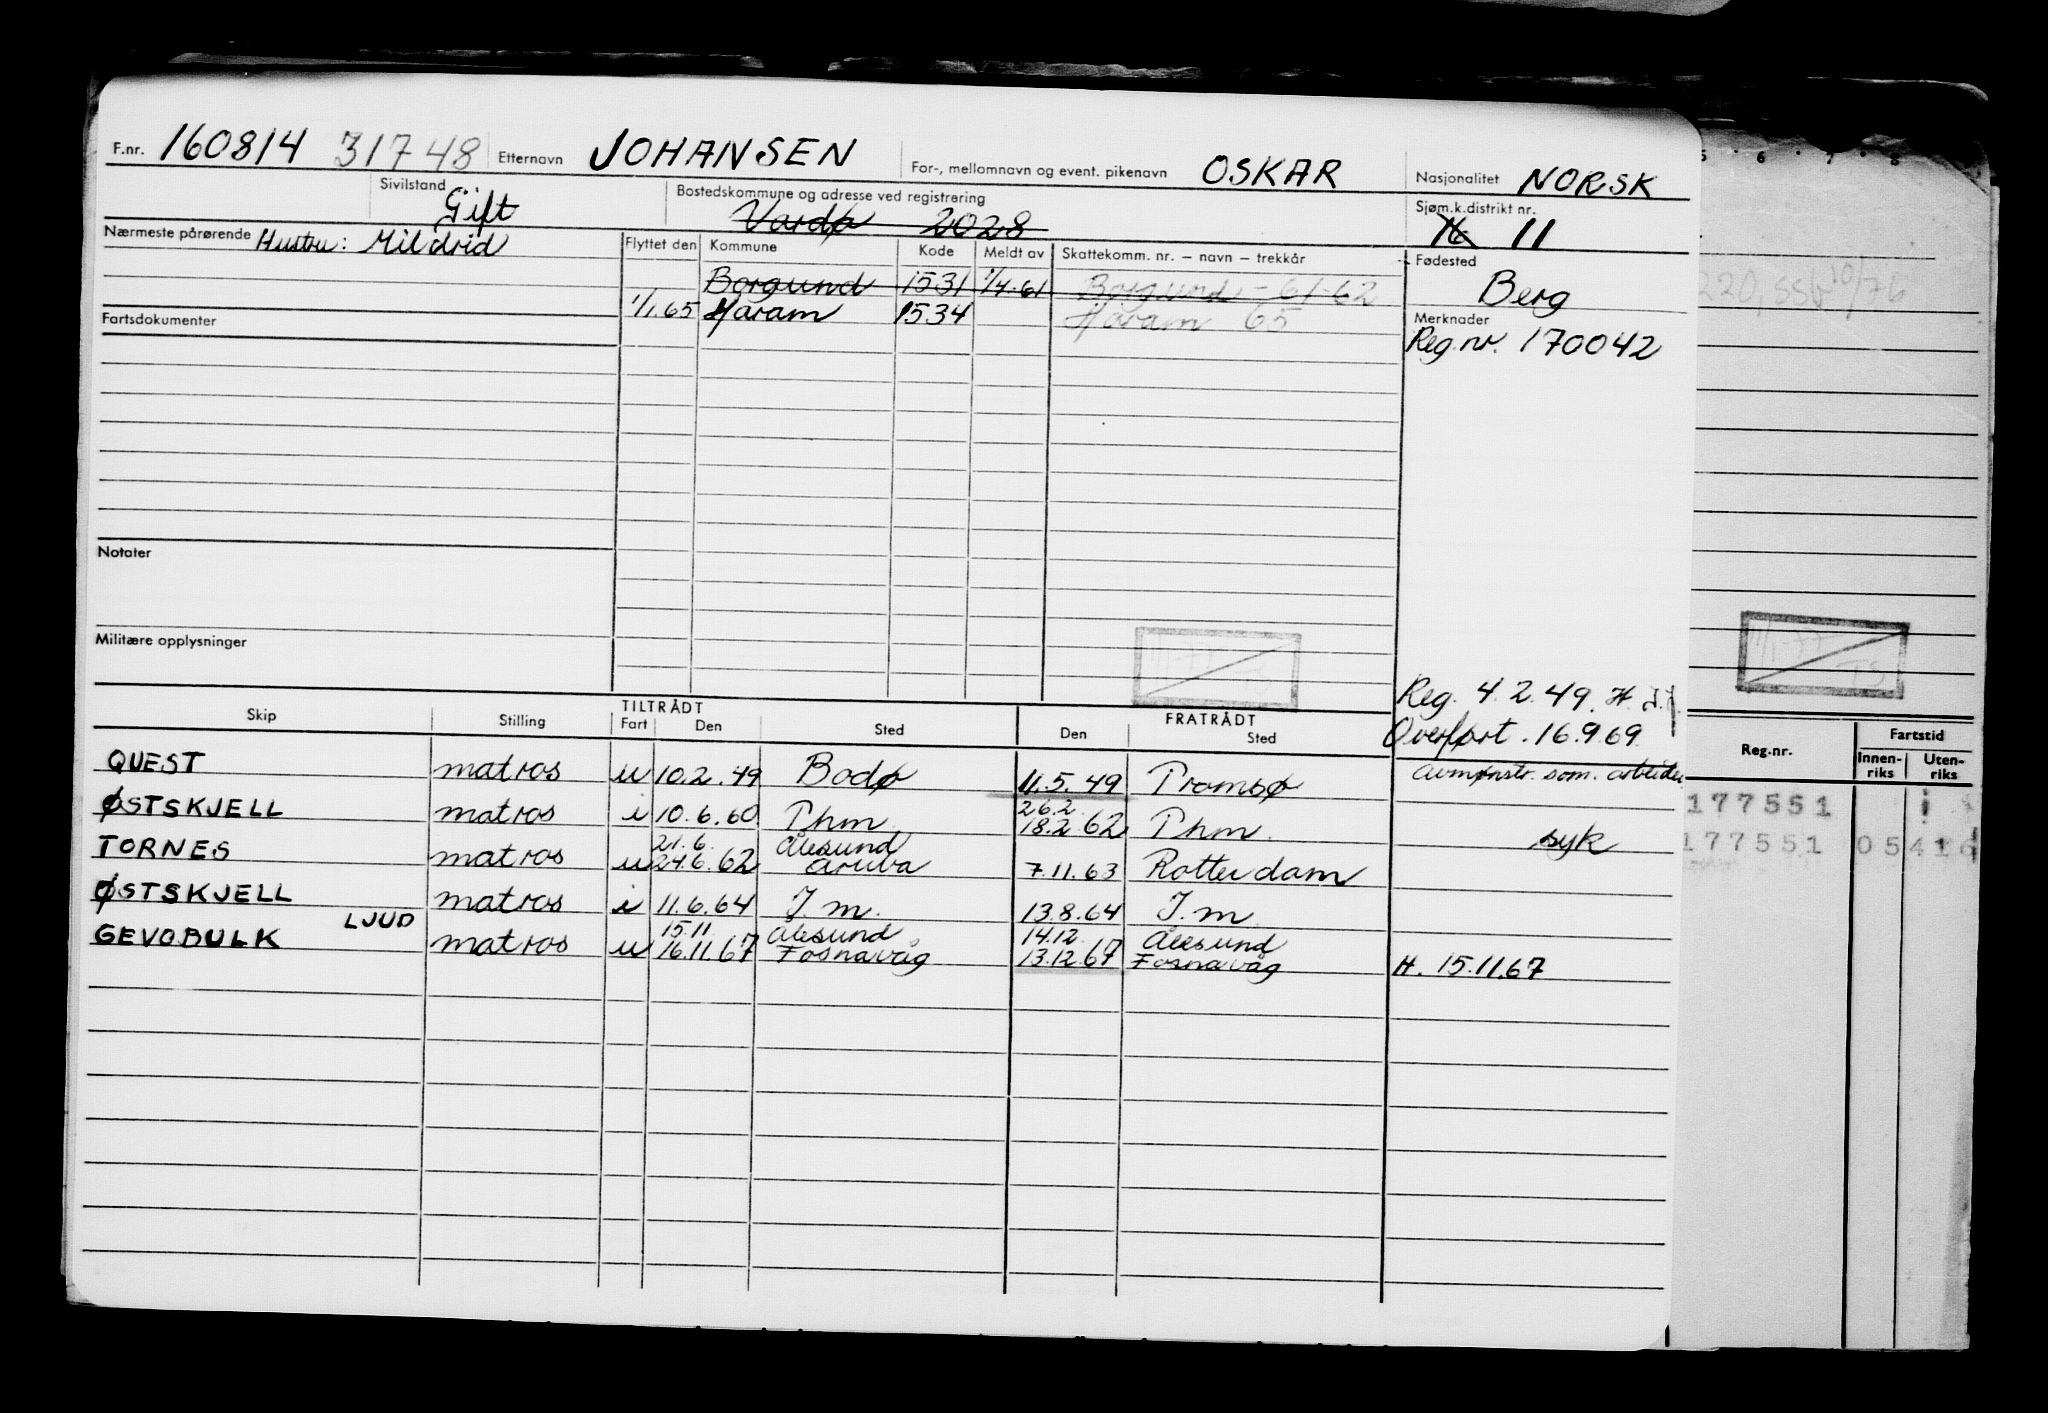 F.nr. 160814 31748 Etternavn JOHANSEN For-, mellomnavn og event. pikenavn OSKAR Nasjonalitet NORSK
Sivilstand Gift Bostedskommune og adresse ved registrering Vardø 2028 Sjøm.k.distrikt nr. 16 11
Nærmeste pårørende Hustru: Mildrid Flyttet den Kommune Kode Meldt av Skattekomm. nr. – navn – trekkår Fødested
Borgund 1531 1/4-61 Borgund - 61-62 Berg
1/1.65 Haram 1534 Haram 65
Fartsdokumenter Merknader
Reg.nr. 170042
Notater
Militære opplysninger
Reg. 4.2.49. H.
Overført. 16.9.69
Skip Stilling TILTRÅDT Fart Den Sted FRATRÅDT Den Sted
Reg.nr. Fartstid Innen-riks Uten-riks
QUEST matros u 10.2.49 Bodø 11.5.49 Tromsø Avmønstr. som. arbeider
177551
ØSTSKJELL matros i 10.6.60 Thm. 26.2. 18.2 62 Thm. syk
177551
TORNES matros u 21.6. 24.6.62 Ålesund Aruba 7.11.63 Rotterdam
ØSTSKJELL matros i 11.6.64 J.m. 13.8.64 J.m.
LJUD
GEVOBULK matros u 15.11 16.11.67 Ålesund Fosnavåg 14.12. 13.12.67 Ålesund Fosnavåg H. 15.11.67